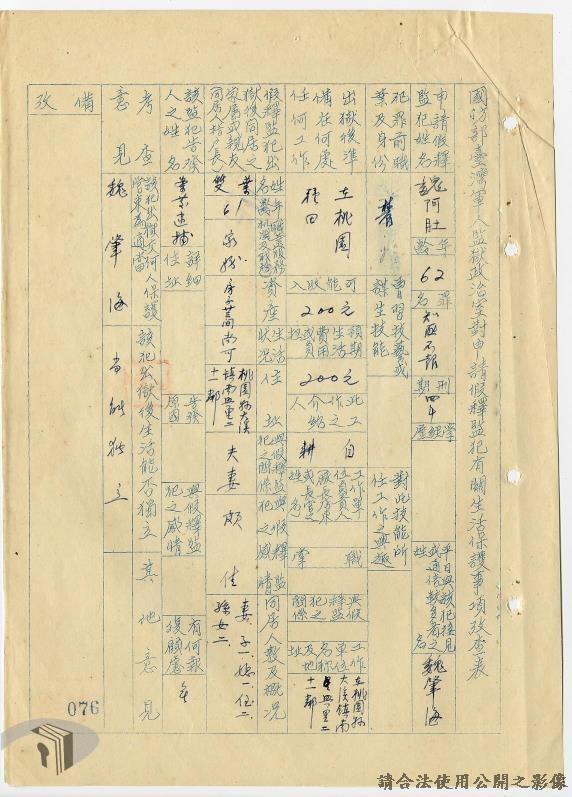 國防部臺灣軍人監獄政治室對申請假釋監犯有關生活保護事項攷查表
申請假釋監犯姓名
魏阿旺
年齡
62
罪名
知匪不報
刑期
四年
學經歷
平日與該犯接見或通信較多者之姓名
魏肇海
犯罪前職業及身份
曾習技藝或謀生技能
對此技能所任工作之興趣
出獄後準備在何處任何工作
在桃園種田
可能收入
200元
預期生活費用或負担
200元
此工作介紹人
自耕
工作單位負責人廠長房東或長官之姓名
職掌
與假釋監犯之關係
工作單位名稱及地址
在桃園縣大溪鎮南
假釋監犯出獄後同居之家屬或親友同居人坊戶長
姓名
年齡
資產
生活狀況
住址
與假釋監犯之關係
與假釋監犯之感情
同居人數及概況
葉雙
61
家務
尚可
桃園縣大溪鎮南
夫妻
頗佳
妻一子一媳一
孫女二
該監犯告發人之姓名
業業逮捕
詳細住址
告發原因
與假釋監犯之感情
有何報復顧慮
無
考查意見
該犯出獄交何人保護管束為適當
魏肇海
該犯出獄後生活能否獨立
尚能獨立
其他意見
備攷
076
請合法使用公開之影像